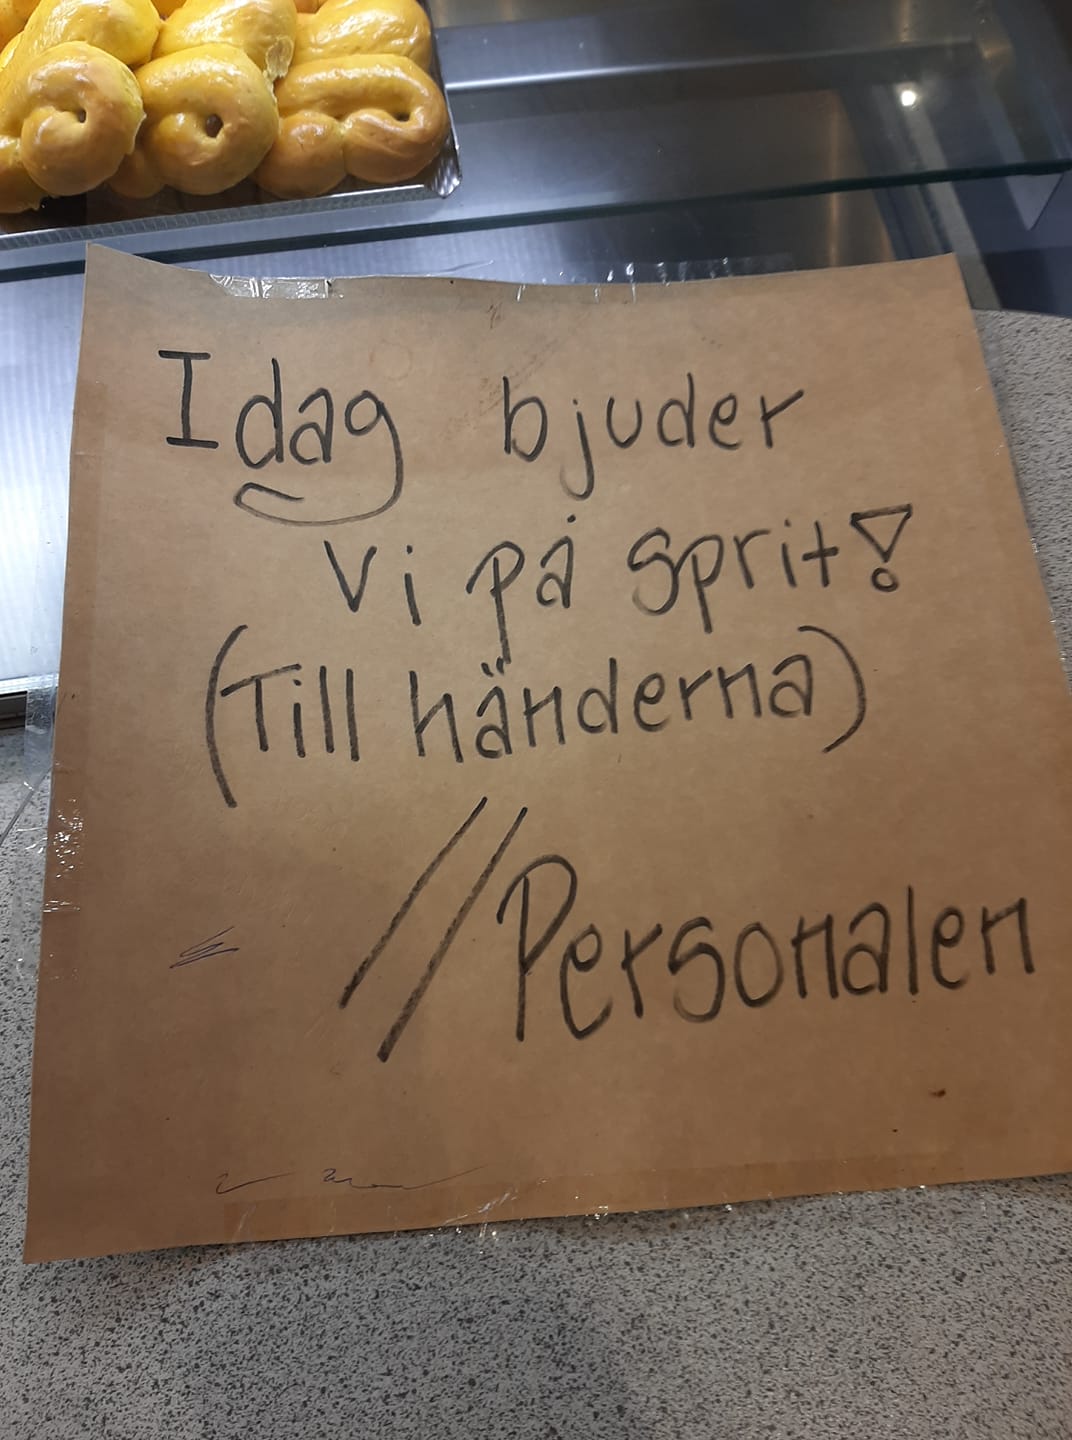 Idag bjuder
vi på sprit!
(Till händerna)
//Personalen